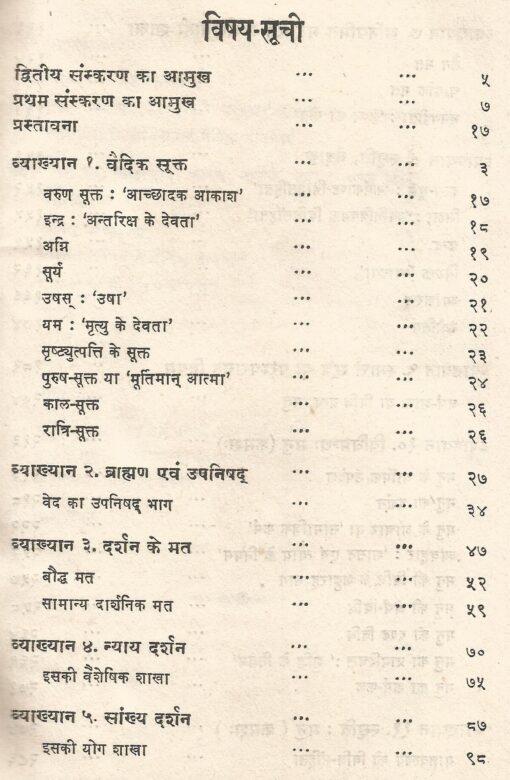 विषय-सूची
द्वितीय संस्करण का आमुख ... ... ५
प्रथम संस्करण का आमुख ... ... ७
प्रस्तावना ... ... १७
व्याख्यान १. वैदिक सूक्त ... ... ३
वरुण सूक्त : ‘आच्छादक आकाश’ ... ... १७
इन्द्र : ‘अन्तरिक्ष के देवता’ ... ... १८
अग्नि ... ... १९
सूर्य ... ... २०
उषस् : ‘उषा’ ... ... २१
यम : ‘मृत्यु के देवता’ ... ... २२
सृष्ट्युत्पत्ति के सूक्त ... ... २३
पुरुष-सूक्त या ‘मूर्तिमान् आत्मा’ ... ... २४
काल-सूक्त ... ... २६
रात्रि-सूक्त ... ... २६
व्याख्यान २. ब्राह्मण एवं उपनिषद् ... ... २७
वेद का उपनिषद् भाग ... ... ३४
व्याख्यान ३. दर्शन के मत ... ... ४७
बौद्ध मत ... ... ५२
सामान्य दार्शनिक मत ... ... ५९
व्याख्यान ४. न्याय दर्शन ... ... ७०
इसकी वैशेषिक शाखा ... ... ७५
व्याख्यान ५. सांख्य दर्शन ... ... ८७
इसकी योग शाखा ... ... ९८